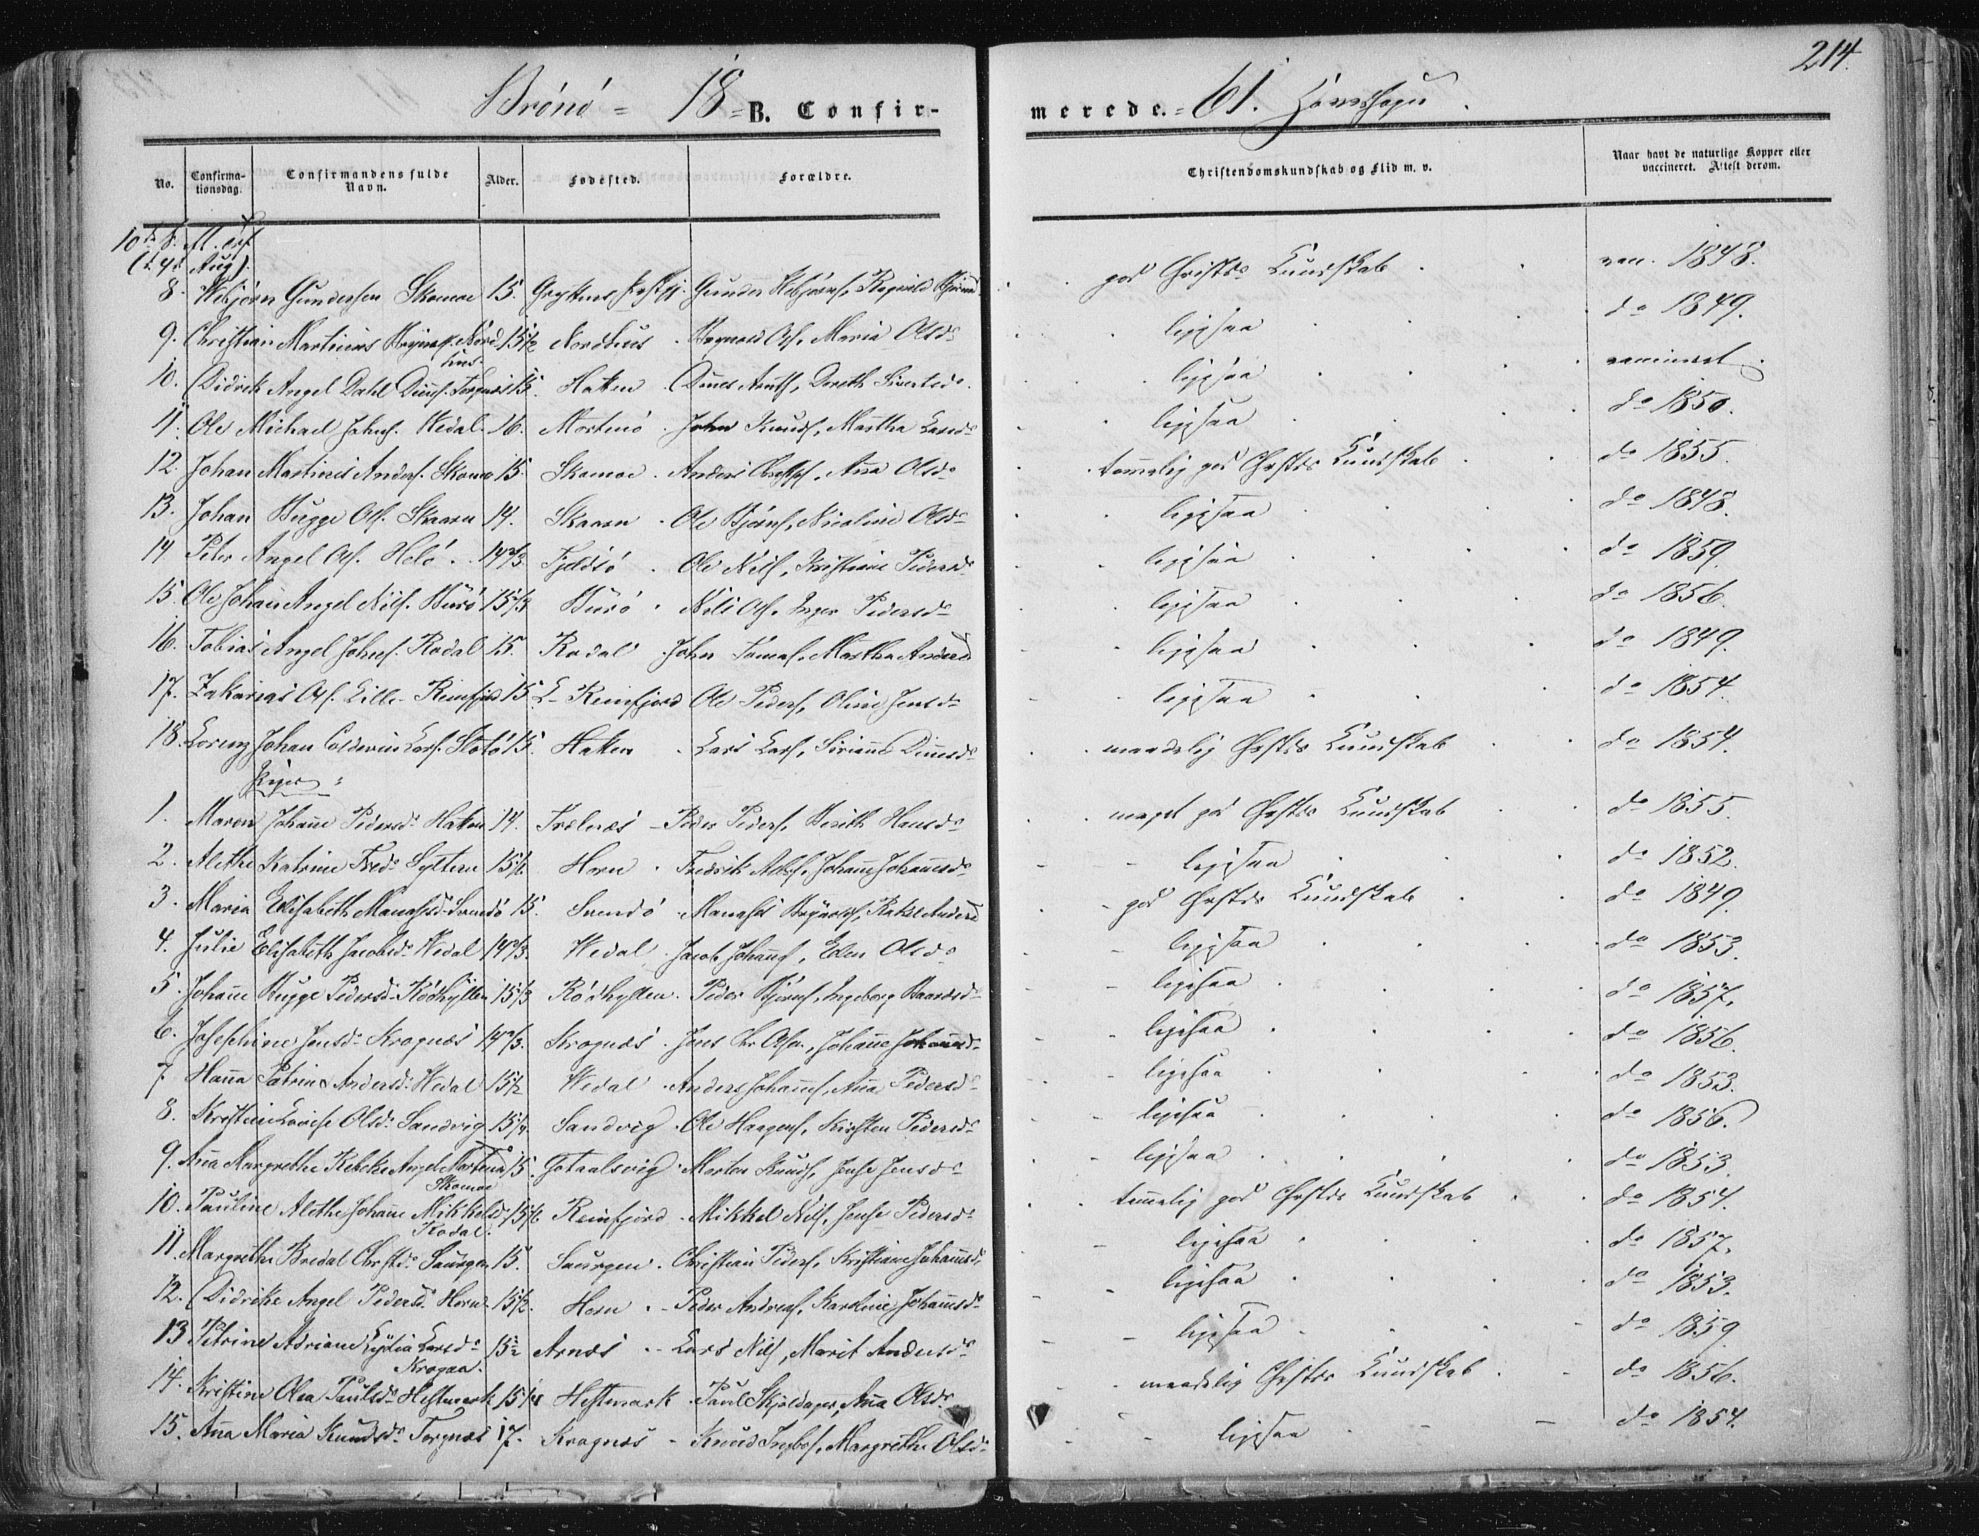 214.
Brönö = 18 = B. Confir-
merede. = 61.
No. Confirma-tionsdag. Confirmandens fulde Navn. Alder. Fødested. Forældre. Christendomskundskab og Flid m. v. Naar havt de naturlige Kopper eller vaccineret. Attest derom.
10de S.
(d. 4de Aug).
8. Gundersen Skomoe 15. Gunder god Christd. Kundskab vac. 1848.
9. Christian Martinus Nordhus 15½ Nordhus Maria Olsd. ligesaa do 1849.
10. Didrik Angel Dahl Torgnæs 15. Haken Dines Dorth Sivertsd. ligesaa vaccineret
11. Ole Michael Johns. Wedal 16. Mortenö John Knuds, Martha Larsd. ligesaa do 1850.
12. Johan Martines Anders. Skomo 15. Skomoe Anders Aña Olsd. temelig god Chrstds Kundskab do 1855.
13. Johan Bugge Ols. Skaaren 14. Skaaren Ole Bjørns, Nicoline Olsd. ligesaa do 1848.
14 Peter Angel Ols. Helö 14⅔ Fjeldsö Ole Nils, Kristiane Pedersd. ligesaa do 1859.
15. Ole Johan Angel Nils. Burö 15⅓ Burö Nils Ols, Inger Pedersd. ligesaa do 1856.
16. Tobias Angel Johns. Rodal 15. Rodal John Tomas, Martha Andersd. ligesaa do 1849.
17. Zakarias Ols. Lille-Reinfjord 15 L-Reinfjord Ole Peders, Oline Jensd. ligesaa do 1854.
18. Lorenz Johan Lars. Slotö 15. Haken Lars Lars, Dinesd. maadelig Chrstds Kundskab do 1854.
Piger
1. Maren Johañe Pedersd. Haken 14. Peder Peders, Berith Hansd. meget god Chrstds Kundskab do 1855.
2. Alethe Katrine Fredd. Syltern Horn Fredrik Johañe Johañesd. ligesaa do 1852.
3. Maria Elisabeth Manassd. Svendö 15. Svendö Manases Rakel Andersd. god Chrstds Kundskab do 1849.
4. Julie Elisabeth Jacobsd. Wedal 14⅔ Wedal Jacob Johañs, Elen Olsd. ligesaa do 1853.
5. Johañe Bugge Pedersd. Rödhylten 15⅓ Rödhylten. Peder Bjørns, Ingeborg Baardsd. ligesaa do 1857.
6. Josephine Jensd. Krognæs 14⅔. Krognæs Jens Chr Ols., Johañe Johañesd. ligesaa do 1856.
7. Haña Petrine Andersd. Wedal 15½ Wedal Anders Johañes, Aña Pedersd. ligesaa do 1853.
8. Kristine Lovise Olsd. Sandvig 15¼. Sandvig Ole Haagens, Kirsten Pedersd. ligesaa do 1856.
9. Aña Margrethe Rebeke Angel Mortensd. Skomoe 15. Morten Knuds, Jense Jensd. ligesaa do 1853.
10. Pauline Alethe Johañe Mikkelsd. Rodal. Reinfjord Mikkel Nils, Jense Pedersd. temelig god Chrstds Kundskab do 1854.
11. Margrethe Bredal Chrstd. Saurgen 15. Saurgen. Christian Peders, Kristiane Johañesd. ligesaa do 1857.
12. Didrike Angel Pedersd. Horn 15½. Horn Peder Andreas, Karoline Johañesd. ligesaa do 1853.
13 Petrine Adriane Lydia Larsd. Krogaa. 15½ Arnæs Lars Nils, Marit Andersd. ligesaa do 1859
14. Kristine Olea Paulsd. Hestmark Hestmark Paul Aña Olsd. maadelig Chrstds Kundskab do 1856.
15. Aña Maria Knudsd. Torgnæs 17. Krognæs Knud Margrethe Olsd. ligesaa do 1854.